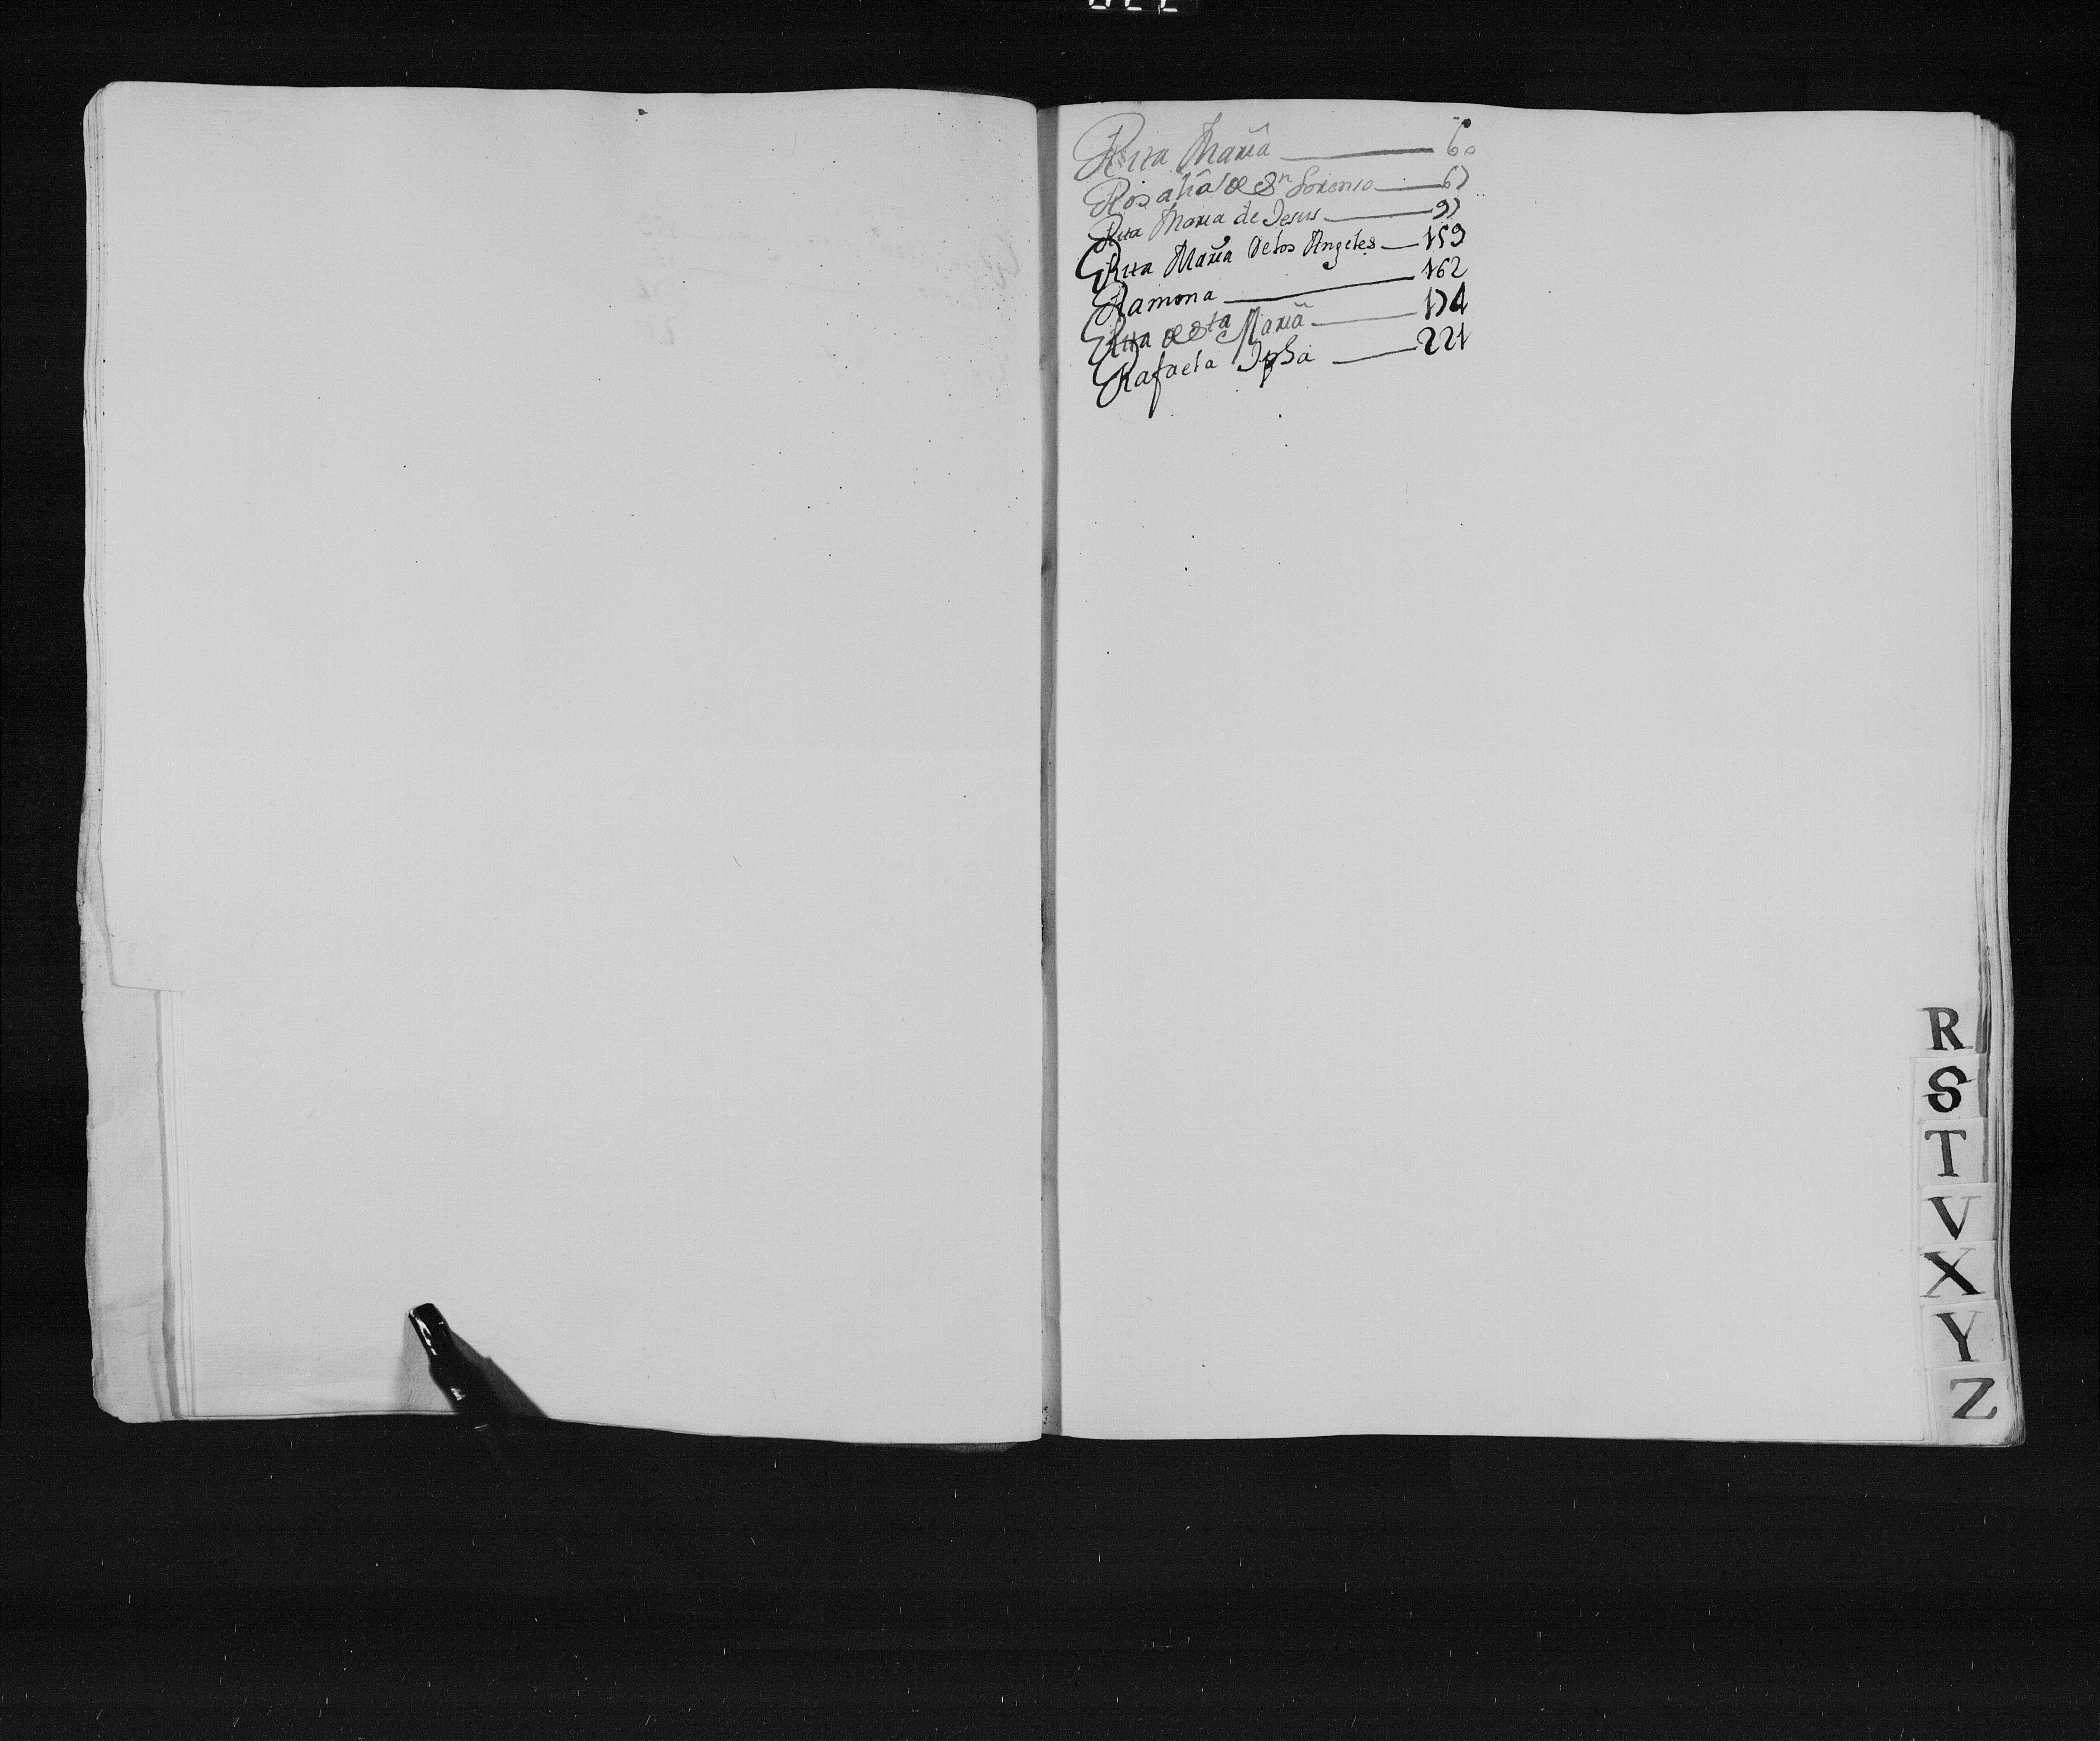 Rita Maria 60
Rosalia de Sn Lorenso 67
Rita Maria de Jesus 97
Rita Maria Delos Angeles 159
Ramona 162
Rita de Sta Maria 174
Rafaela Jpha 221
R
S
T
V
X
Y
Z